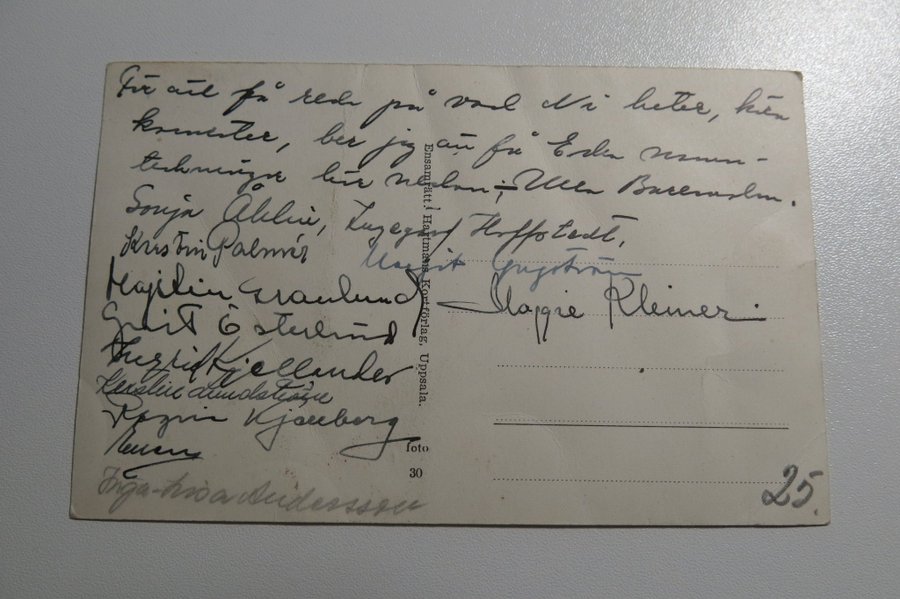 För att få reda på vad Ni heter, kära
kamrater, ber jag att få Edra namn-
teckningar här nedan; Ulla
Sonja Åhlin, Ingegerd Hoffstedt,
Kristin Palmér
Margit Engström
Majken Granlund
Maggie Kleiner
Grét Österlund
Ingrid Kjellander
Kerstin Lundström
Ragnar Kjellberg
Inga-Lisa Andersson
Ensamrätt: Hartmans Kortförlag, Uppsala.
foto
30
25.